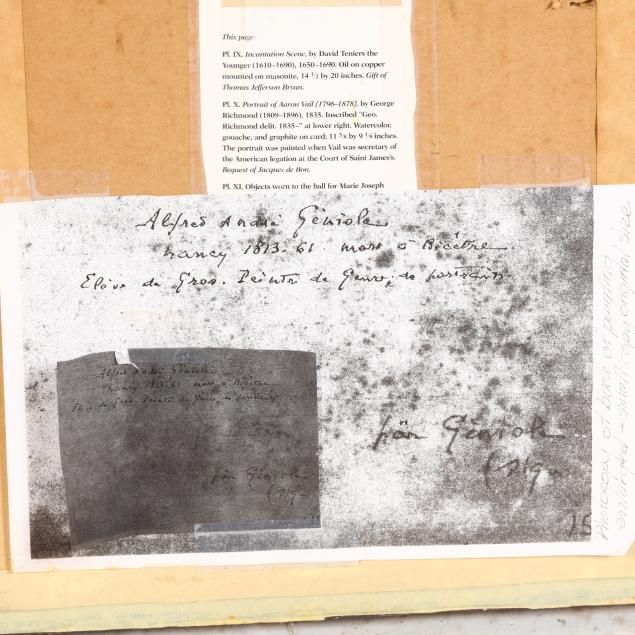 This page:
Pl. IX. Incantation Scene, by David Teniers the
Younger (1610–1690), 1650–1690. Oil on copper
mounted on masonite, 14 1/2 by 20 inches. Gift of
Thomas Jefferson Bryan.
Pl. X. Portrait of Aaron Vail [1796–1878], by George
Richmond (1809–1896), 1835. Inscribed "Geo.
Richmond delit. 1835–" at lower right. Watercolor,
gouache, and graphite on card; 11 5/8 by 9 1/8 inches.
The portrait was painted when Vail was secretary of
the American legation at the Court of Saint James's.
Bequest of Jacques de Bon.
Pl. XI. Objects worn to the ball for Marie Joseph
Alfred André Géniole
nancy 1813. 61. mort à Bicêtre
Elève de Gros. Peintre de Genre, de portraits
Géniole
Alfred André Géniole
nancy 1813. 61. mort à Bicêtre
Elève de Gros. Peintre de Genre, de portraits
Géniole
15
Photocopy of back of
enlarged - small copy
size